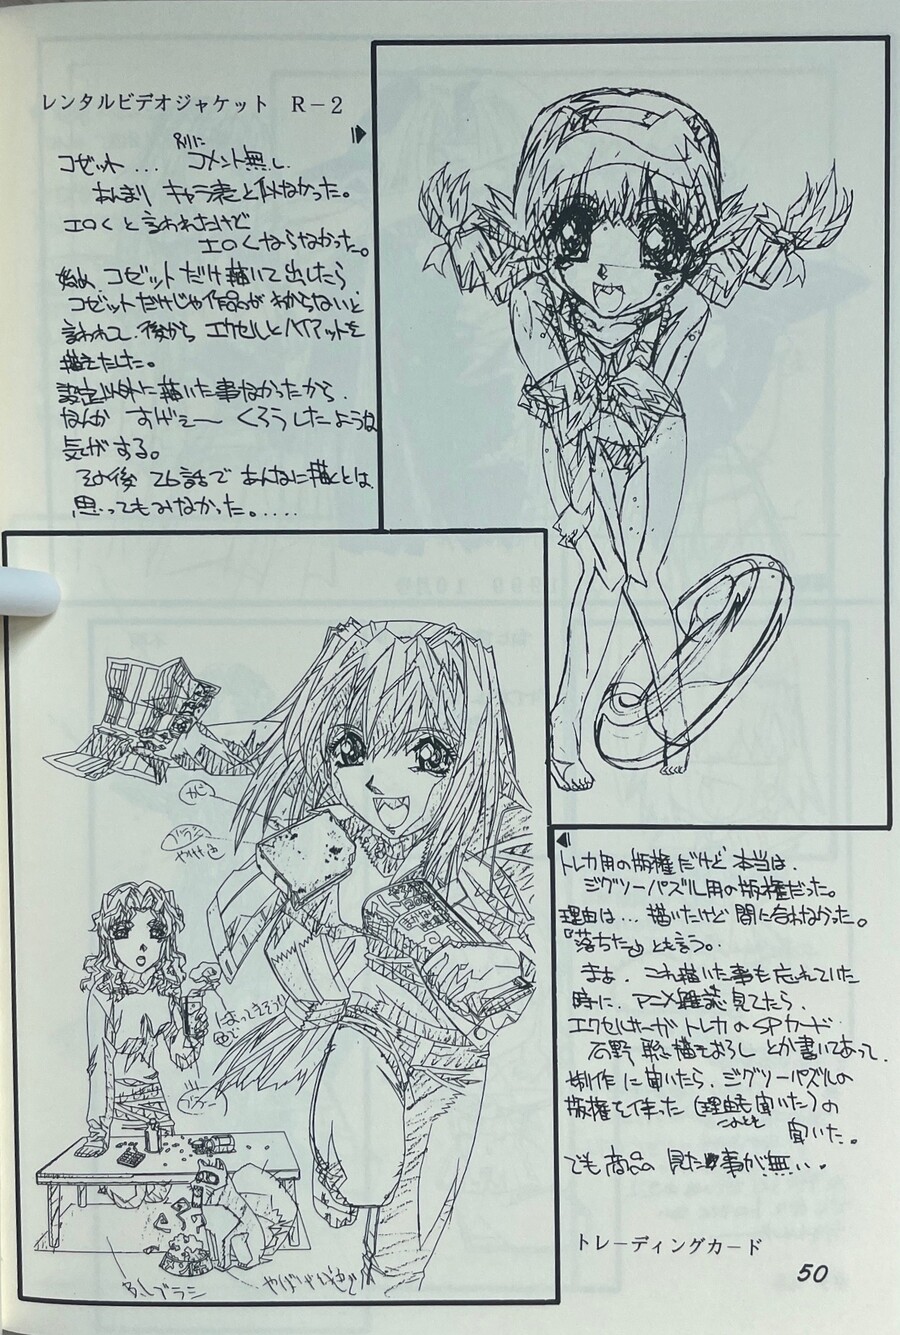 レンタルビデオジャケット R-2
コゼット... 別にコメント無し.
あんまり キャラ表と似なかった。
エロくと言われたけど
エロくならなかった。
始め、コゼットだけ描いて出したら
コゼットだけじゃ作品がわからないと
言われて、後から エクセルとハイアットを
描えたした。
設定以外に描いた事なかったから、
なんか すげェ〜 くろうしたような
気がする。
その後 26話で あんなに描くとは、
思ってもみなかった。.....
が
ブラシ
やけ色
B.Lブラシ
トレカ用の版権だけど 本当は、
ジグソーパズル用の版権だった。
理由は... 描いたけど 間に合わなかった。
『落ちた』とも言う。
まぁ、これ描いた事も忘れていた
時に、アニメ雑誌 見てたら、
エクセルサーガ トレカのSPカード
石野 聡 描きおろし とか書いてあって、
制作に聞いたら、ジグソーパズルの
版権を使った (理由も聞いた)の
ことを
聞いた。
でも商品 見た事が無い。
トレーディングカード
50